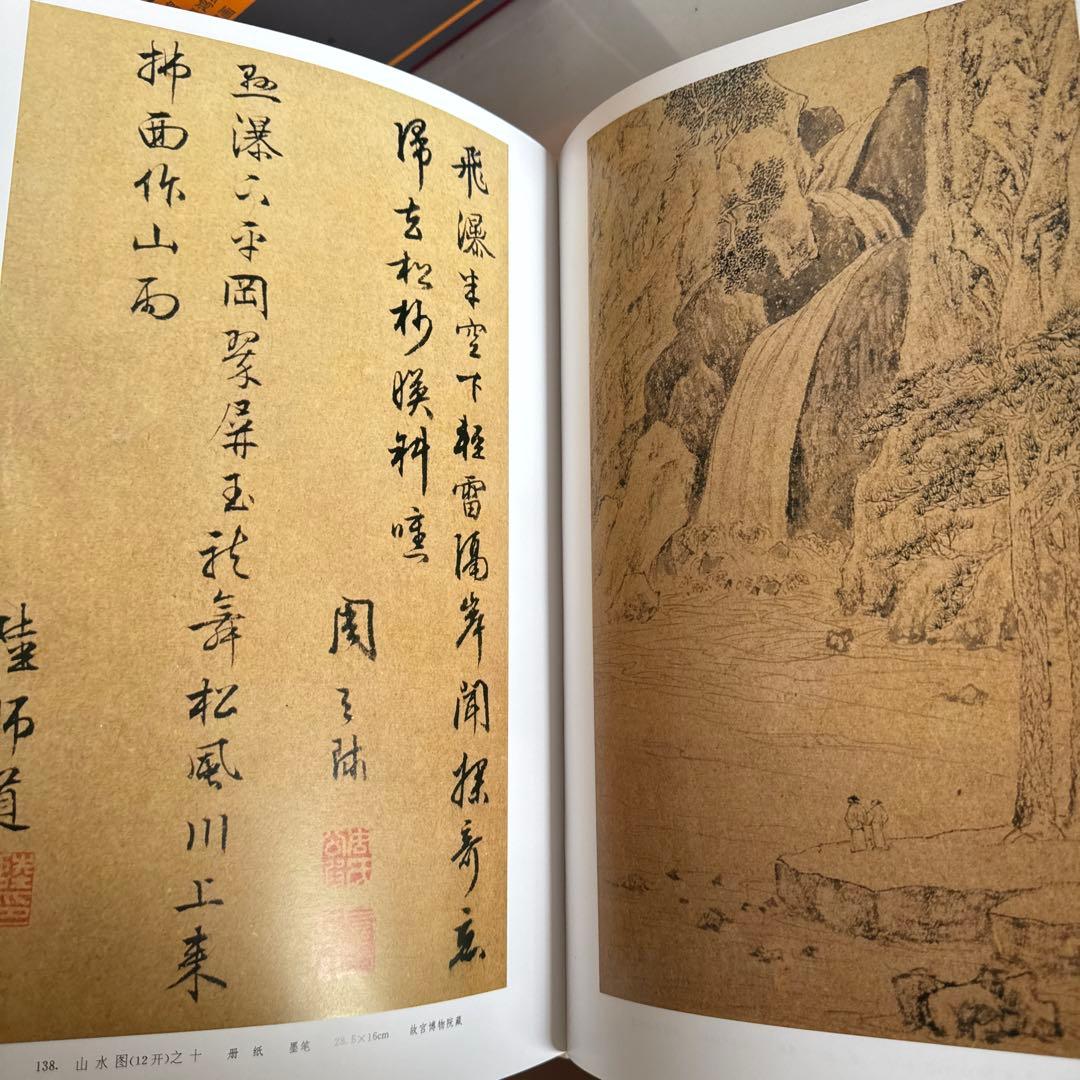 飛瀑半空下輕雷隔岸聞探奇忘
歸去松杪暎斜曛
周天球
懸瀑下平岡翠屏玉龍舞松風川上來
拂面作山雨
陸師道
138. 山水图(12开)之十 册 纸 墨笔 28.5×16cm 故宫博物院藏